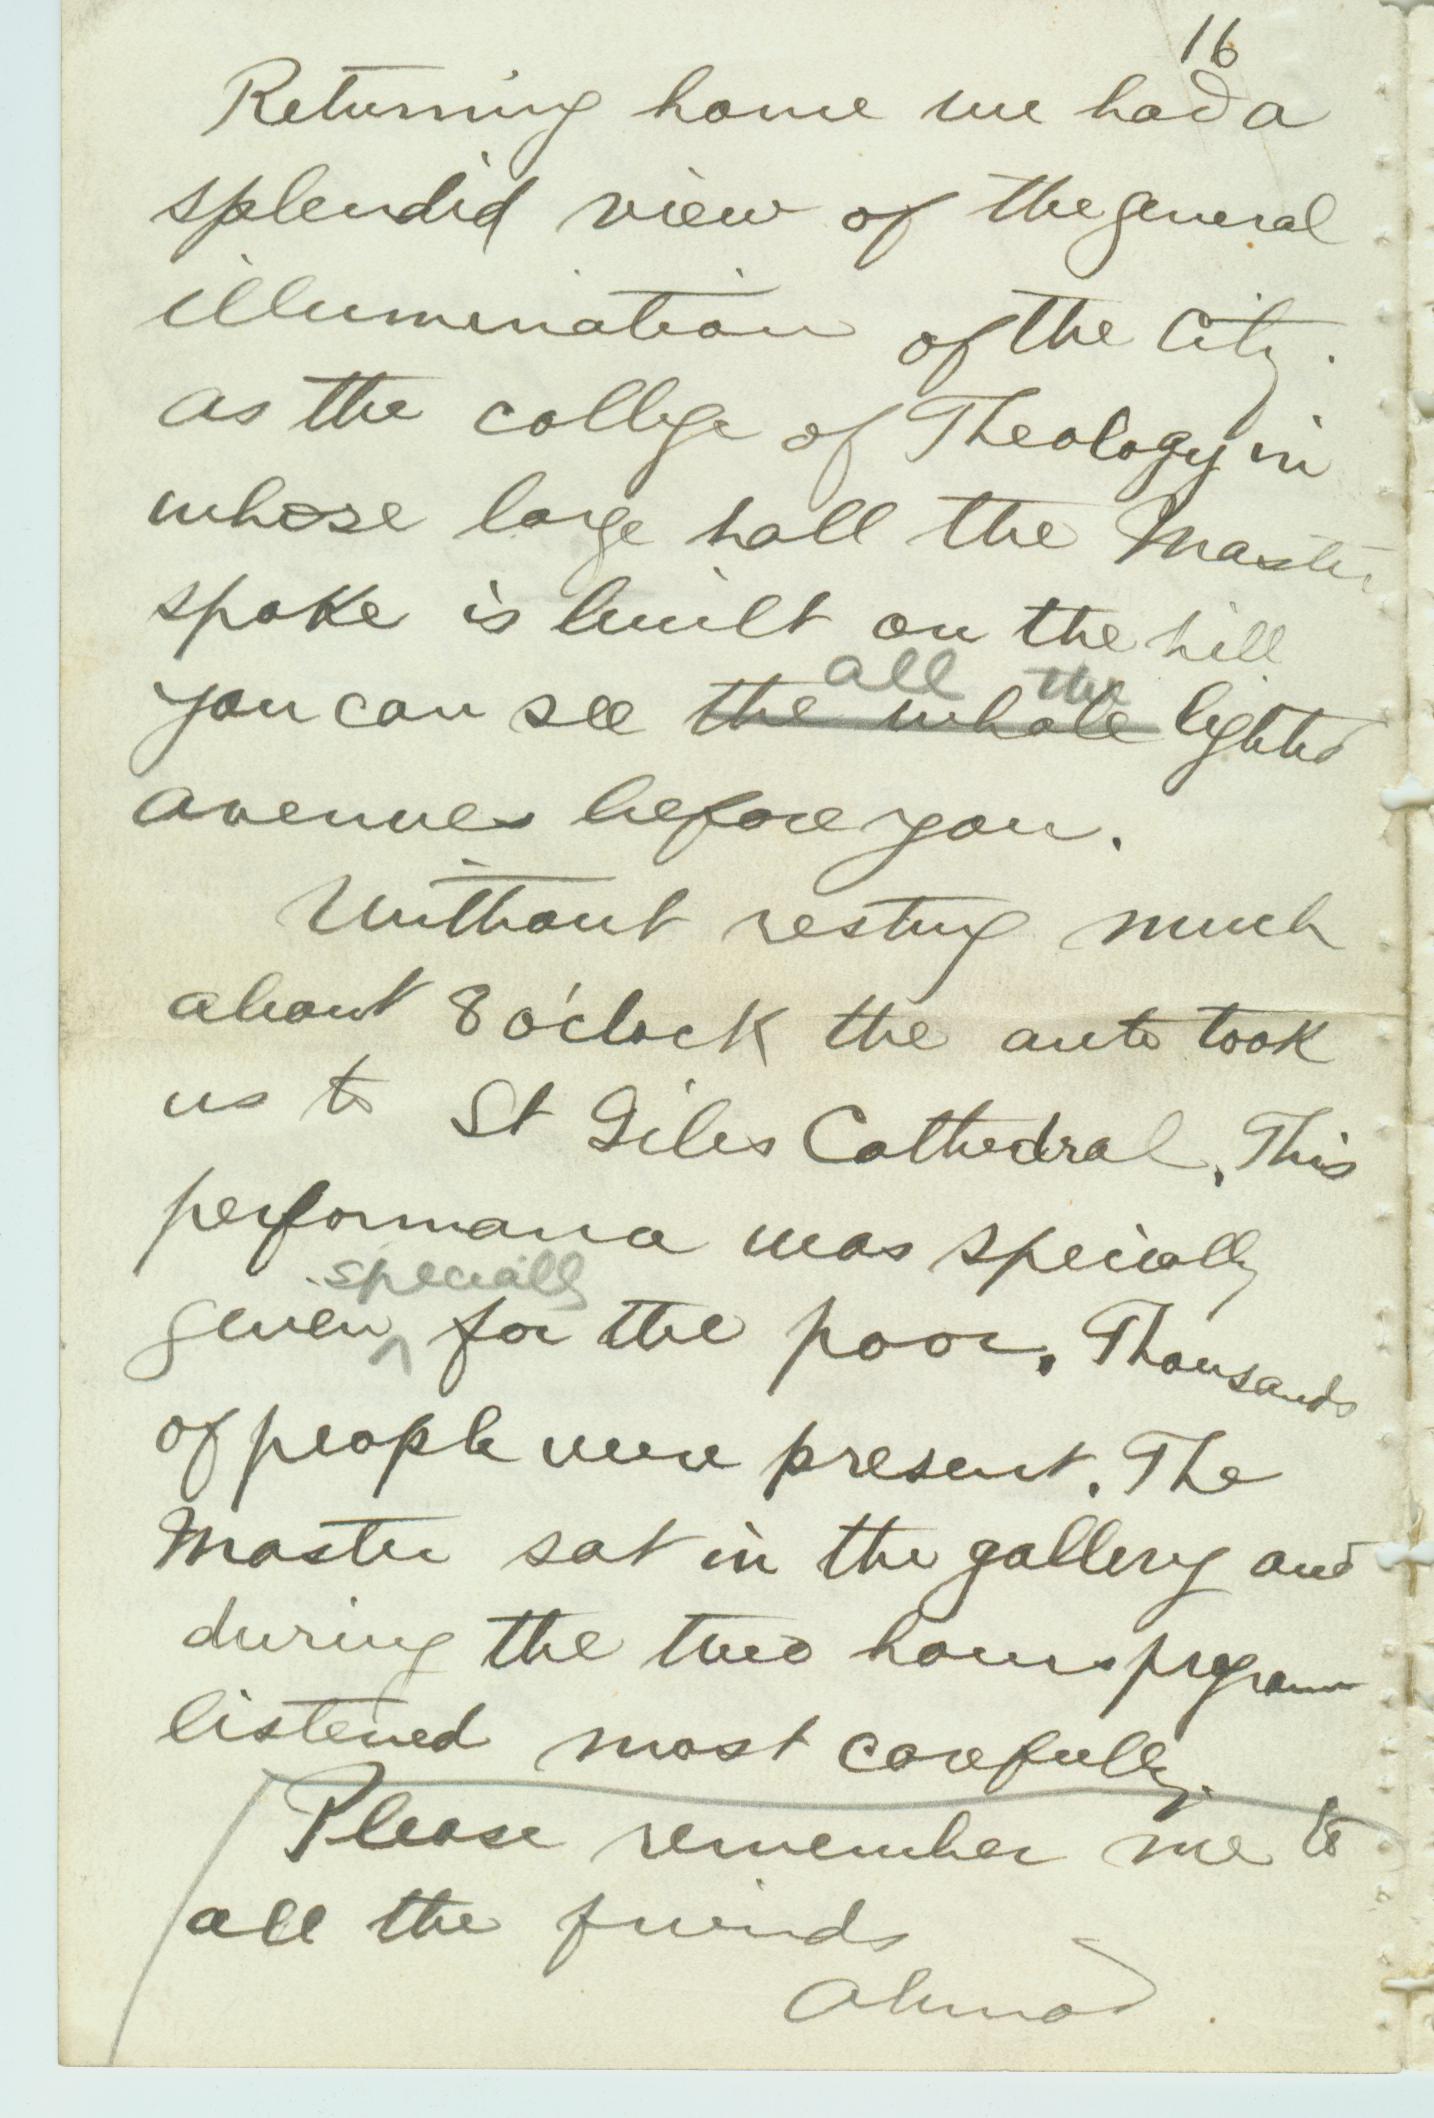 16
Returning home we had a
splendid view of the general
illumination of the City.
as the college of Theology in
whose large hall the Master
spoke is built on the hill
all the
you can see the whole lighted
avenues before you.
Without resting much
about 8 o'clock the auto took
us to St Giles Cathedral. This
performance was specially
specially
given ^ for the poor. Thousands
of people were present. The
Master sat in the gallery and
during the two hours program
listened most carefully.
Please remember me to
all the friends
Ahmad